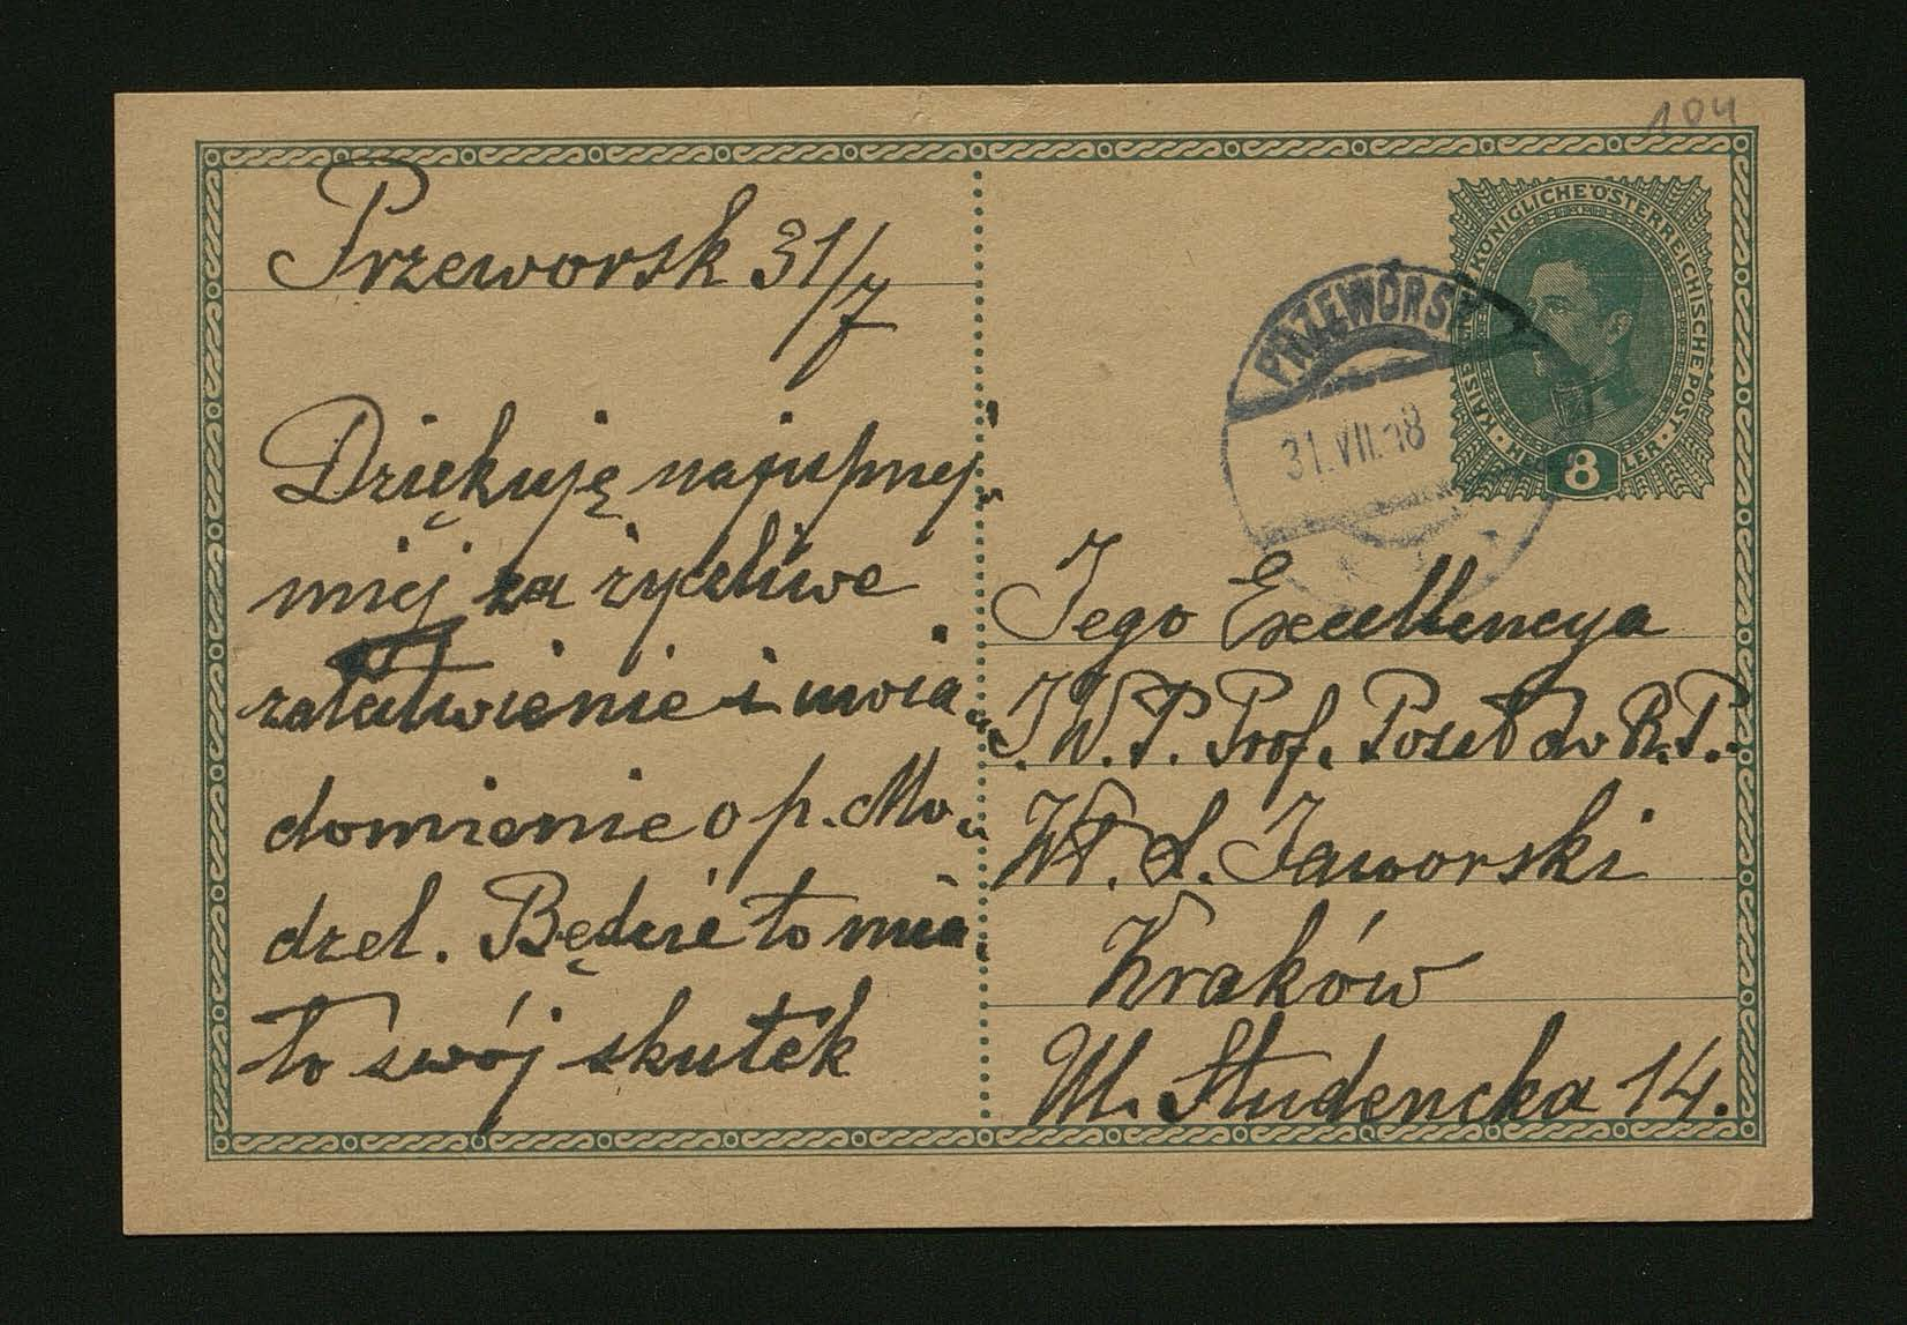 104
Przeworsk 31/7
Dziękuję najuprzej-
miej za życzliwe
załatwienie i uwia-
domienie o p. Mo-
dzel. Będzie to mia-
ło swój skutek
KAISERLICHE KÖNIGLICHE ÖSTERREICHISCHE POST
HELLER
8
PRZEWORSK
31.VII.18
Jego Excellencya
J.W.P. Prof. Poseł do R.P.
Wł. L. Jaworski
Kraków
Ul. Studencka 14.